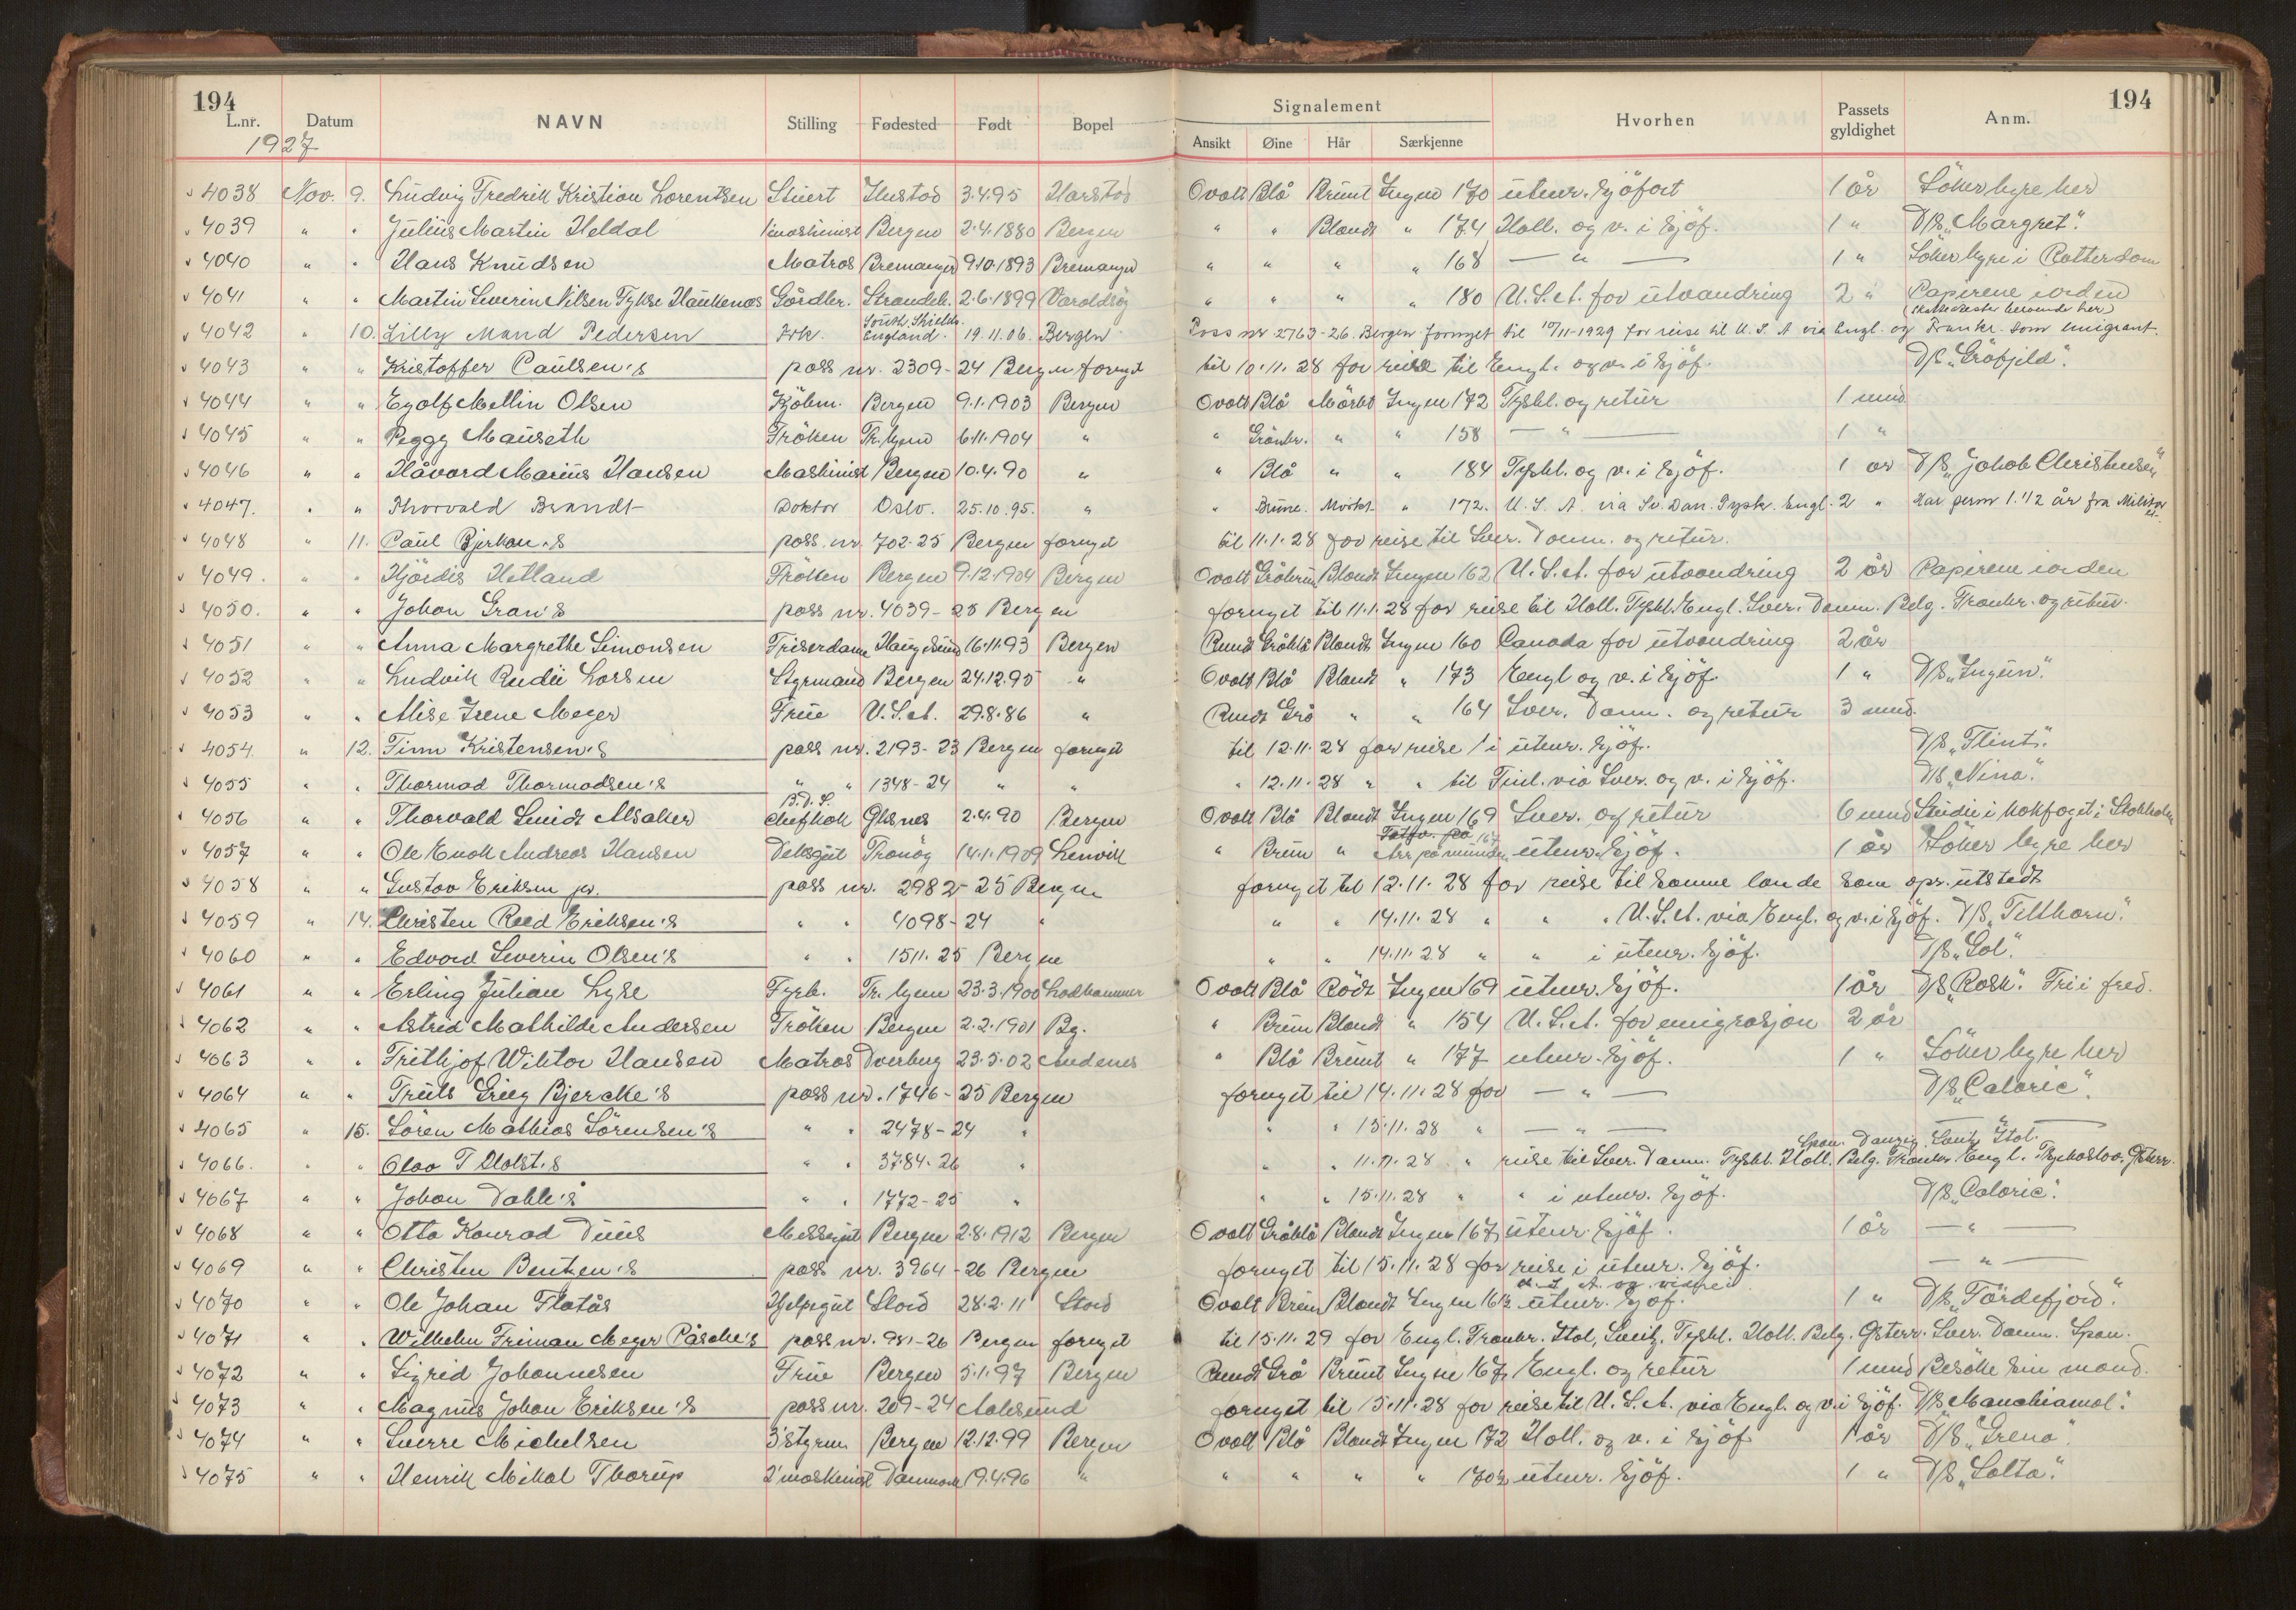 194 194
Signalement
L.nr. Datum NAVN Stilling Fødested Født Bopel Ansikt Øine Hår Særkjenne Hvorhen Passets gyldighet Anm.
1927
4038 Nov. 9. Ludvig Fredrik Kristian Lorentsen Stuert 3.4.95 Harstad Ovalt Blå Brunt Ingen 170 utenr. sjöfart 1 år Söker hyre her
4039 " " Julius Martin Heldal maskinist Bergen 2.4.1880 Bergen " " Blondt " 174 Holl. og v. i sjöf. 1 " D/S „Margret".
4040 " " Hans Knudsen Matros Bremanger 9.10.1893 Bremanger " " " " 168 — " — 1 " Söker hyre i Rotterdam
4041 " " Martin Severin Nilsen Tykse Haukenæs Gårdbr. Strandeb. 2.6.1899 Varaldsöy " " " " 180 U.S.A. for utvandring 2 " Papirene iorden
4042 " 10. Lilly Maud Pedersen Frk. South Shields England. 19.11.06. Bergen Pass nr 2763-26. Bergen fornyet til 10/11-1929 for reise til U.S.A via Engl. og Frankr. som emigrant.
4043 " " Kristoffer Paulsen's pass nr. 2309-24 Bergen fornyet til 10.11.28 for reise til Engl. og v. i sjöf. D/S „Gråfjeld".
4044 " " Eyolf Mellin Olsen Kjöbm. Bergen 9.1.1903 Bergen Ovalt Blå Mörkt Ingen 172 Tyskl. og retur 1 mnd
4045 " " Peggy Mauseth Fröken Tr.hjem 6.11.1904 " " Grönbr. " " 158 — " — 1 "
4046 " " Håvard Marius Hansen Maskinist Bergen 10.4.90 " " Blå " " 184 Tyskl. og v. i sjöf. 1 år D/S „Jakob Christensen"
4047. " " Thorvald Brandt Doktor Oslo. 25.10.95. " " Brune. Mörkt. " 172. U.S.A. via Sv. Dan. Tyskl. Engl. 2 " Har perm 1. 1/2 år fra Militæret.
4048 " 11. Paul Bjerkan's pass nr. 702-25 Bergen fornyet til 11.1.28 for reise til Sver. Danm. og retur.
4049. " " Hjördis Hetland Fröken Bergen 9.12.1904 Bergen Ovalt Gråbrun Blondt Ingen 162 U.S.A. for utvandring 2 år Papirene iorden
4050. " " Johan Gran's pass nr. 4039-25 Bergen fornyet til 11.1.28 for reise til Holl. Tyskl. Engl. Sver. Danm. Belg. Frankr. og retur.
4051 " " Anna Margrethe Simonsen Friserdame Haugesund 16.11.93 Bergen Rundt Gråblå Blondt Ingen 160 Canada for utvandring 2 år
4052 " " Ludvik Rudii Larsen Styrmand Bergen 24.12.95 " Ovalt Blå Blondt " 173 Engl og v. i sjöf. 1 " D/S „Ingun".
4053 " " Alise Irene Meyer Frue U.S.A. 29.8.86 " Rundt Grå " " 164 Sver. Danm. og retur 3 mnd.
4054. " 12. Finn Kristensen's pass nr. 2193-23 Bergen fornyet til 12.11.28 for reise i utenr. sjöf. D/S „Flint".
4055 " " Thormod Thormodsen's " " 1348-24 " " " 12.11.28 " " til Finl. via Sver. og v. i sjöf. D/S „Nina".
4056 " " Thorvald Smidt Alsaker B.D.S. chefkok 2.4.90 Bergen Ovalt Blå Blondt Ingen 169 Sver. og retur 6 mnd Studie i kokfaget i Stokholm
4057 " " Ole Enok Andreas Hansen Deksgut Tranöy 14.1.1909 Lenvik " Brun " Tatov. på Arr på munden 167 utenr. sjöf. 1 år Söker hyre her
4058 " " Gustav Eriksen jr. pass nr. 2982-25 Bergen fornyet til 12.11.28 for reise til samme lande som opr. utstedt
4059 " 14. Christen Reed Eriksen's " " 4098-24 " " " 14.11.28 " " " U.S.A. via Engl. og v. i sjöf. D/S „Titthorn".
4060 " " Edvard Severin Olsen's " " 1511.25 Bergen " " 14.11.28 " " i utenr. sjöf. D/S „Sol".
4061 " " Erling Julian Lyse Fyrb. Tr.hjem 23.3.1900 Ladhammer Ovalt Blå Rödt Ingen 169 utenr. sjöf. 1 år D/S „Rask". Fri i fred.
4062 " " Astrid Mathilde Andersen Fröken Bergen 2.2.1901 Bg. " Brun Blondt " 154 U.S.A. for emigrasjon 2 år
4063 " " Frithjof Wiktor Hansen Matros Dverberg 23.5.02 Andenes " Blå Brunt " 177 utenr. sjöf. 1 " Söker hyre her
4064 " " Truls Grieg Bjercke's pass nr. 1746-25 Bergen fornyet til 14.11.28 for — " — D/S „Caloric".
4065 " 15. Sören Mathias Sörensen's " " 2478-24 " " " 15.11.28 " — " — — " —
Span. Danzig. Sveits Ital.
4066. " " Olav T Holst's " " 3784-26 " " " 11.11.28 " reise til Sver. Danm. Tyskl. Holl. Belg. Frankr. Engl. Tsjekoslov. Österr.
4067 " " Johan Dahle's " " 1772-25 " " " 15.11.28 " " i utenr. sjöf. D/S „Caloric".
4068 " " Otto Konrad Duus Messegut Bergen 2.8.1912 Bergen Ovalt Gråblå Blondt Ingen 167 utenr. sjöf. 1 år — " —
4069 " " Christen Bentzen's pass nr. 3964-26 Bergen fornyet til 15.11.28 for reise i utenr. sjöf. — " —
U.S.A. og videre i
4070 " " Ole Johan Flatås Hjelpegut Stord 28.2.11 Stord Ovalt Brun Blondt Ingen 161½ utenr. sjöf. 1 " D/S „Fördefjord".
4071 " " Wilhelm Friman Meyer Påsche's pass nr. 981-26 Bergen fornyet til 15.11.29 for Engl. Frankr. Ital, Sveits, Tyskl. Holl. Belg. Österr. Sver. Danm. Span.
4072 " " Sigrid Johannesen Frue Bergen 5.1.97 Bergen Rundt Grå Brunt Ingen 167 Engl. og retur 1 mnd Besöke sin mand.
4073 " " Magnus Johan Eriksen's pass nr. 209-24 Aalesund fornyet til 15.11.28 for reise til U.S.A. via Engl. og v. i sjöf. D/S
4074 " " Sverre Michelsen 3'styrm. Bergen 12.12.99 Bergen Ovalt Blå Blondt Ingen 172 Holl. og v. i sjöf 1 år D/S „Grena".
4075 " " Henrik Mikal Thorup 2'maskinist Danmark 19.4.96 " " " " " 170½ utenr. sjöf. 1 " D/S „Salta".